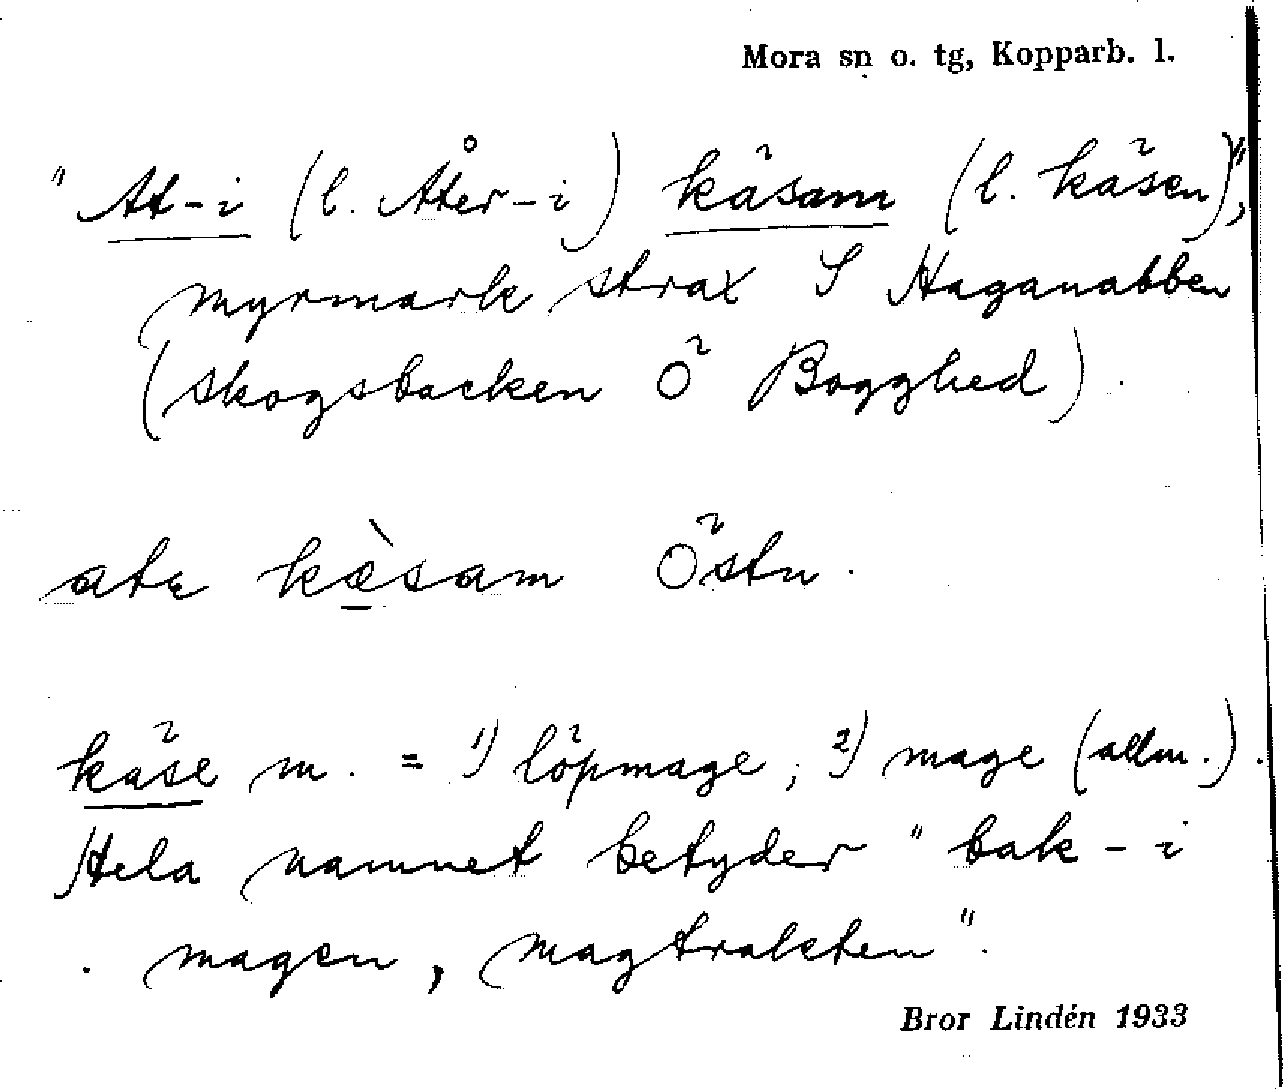 Mora sn o. tg, Kopparb. l.
"At-i (l. Åter-i) käsam (l. käsen)",
myrmark strax S Haganabben
(skogsbacken Ö Bogghed).
ate kæ̀sam Östn.
käse m. = 1) löpmage, 2) mage (allm.).
Hela namnet betyder "bak-i
magen, magtrakten".
Bror Lindén 1933